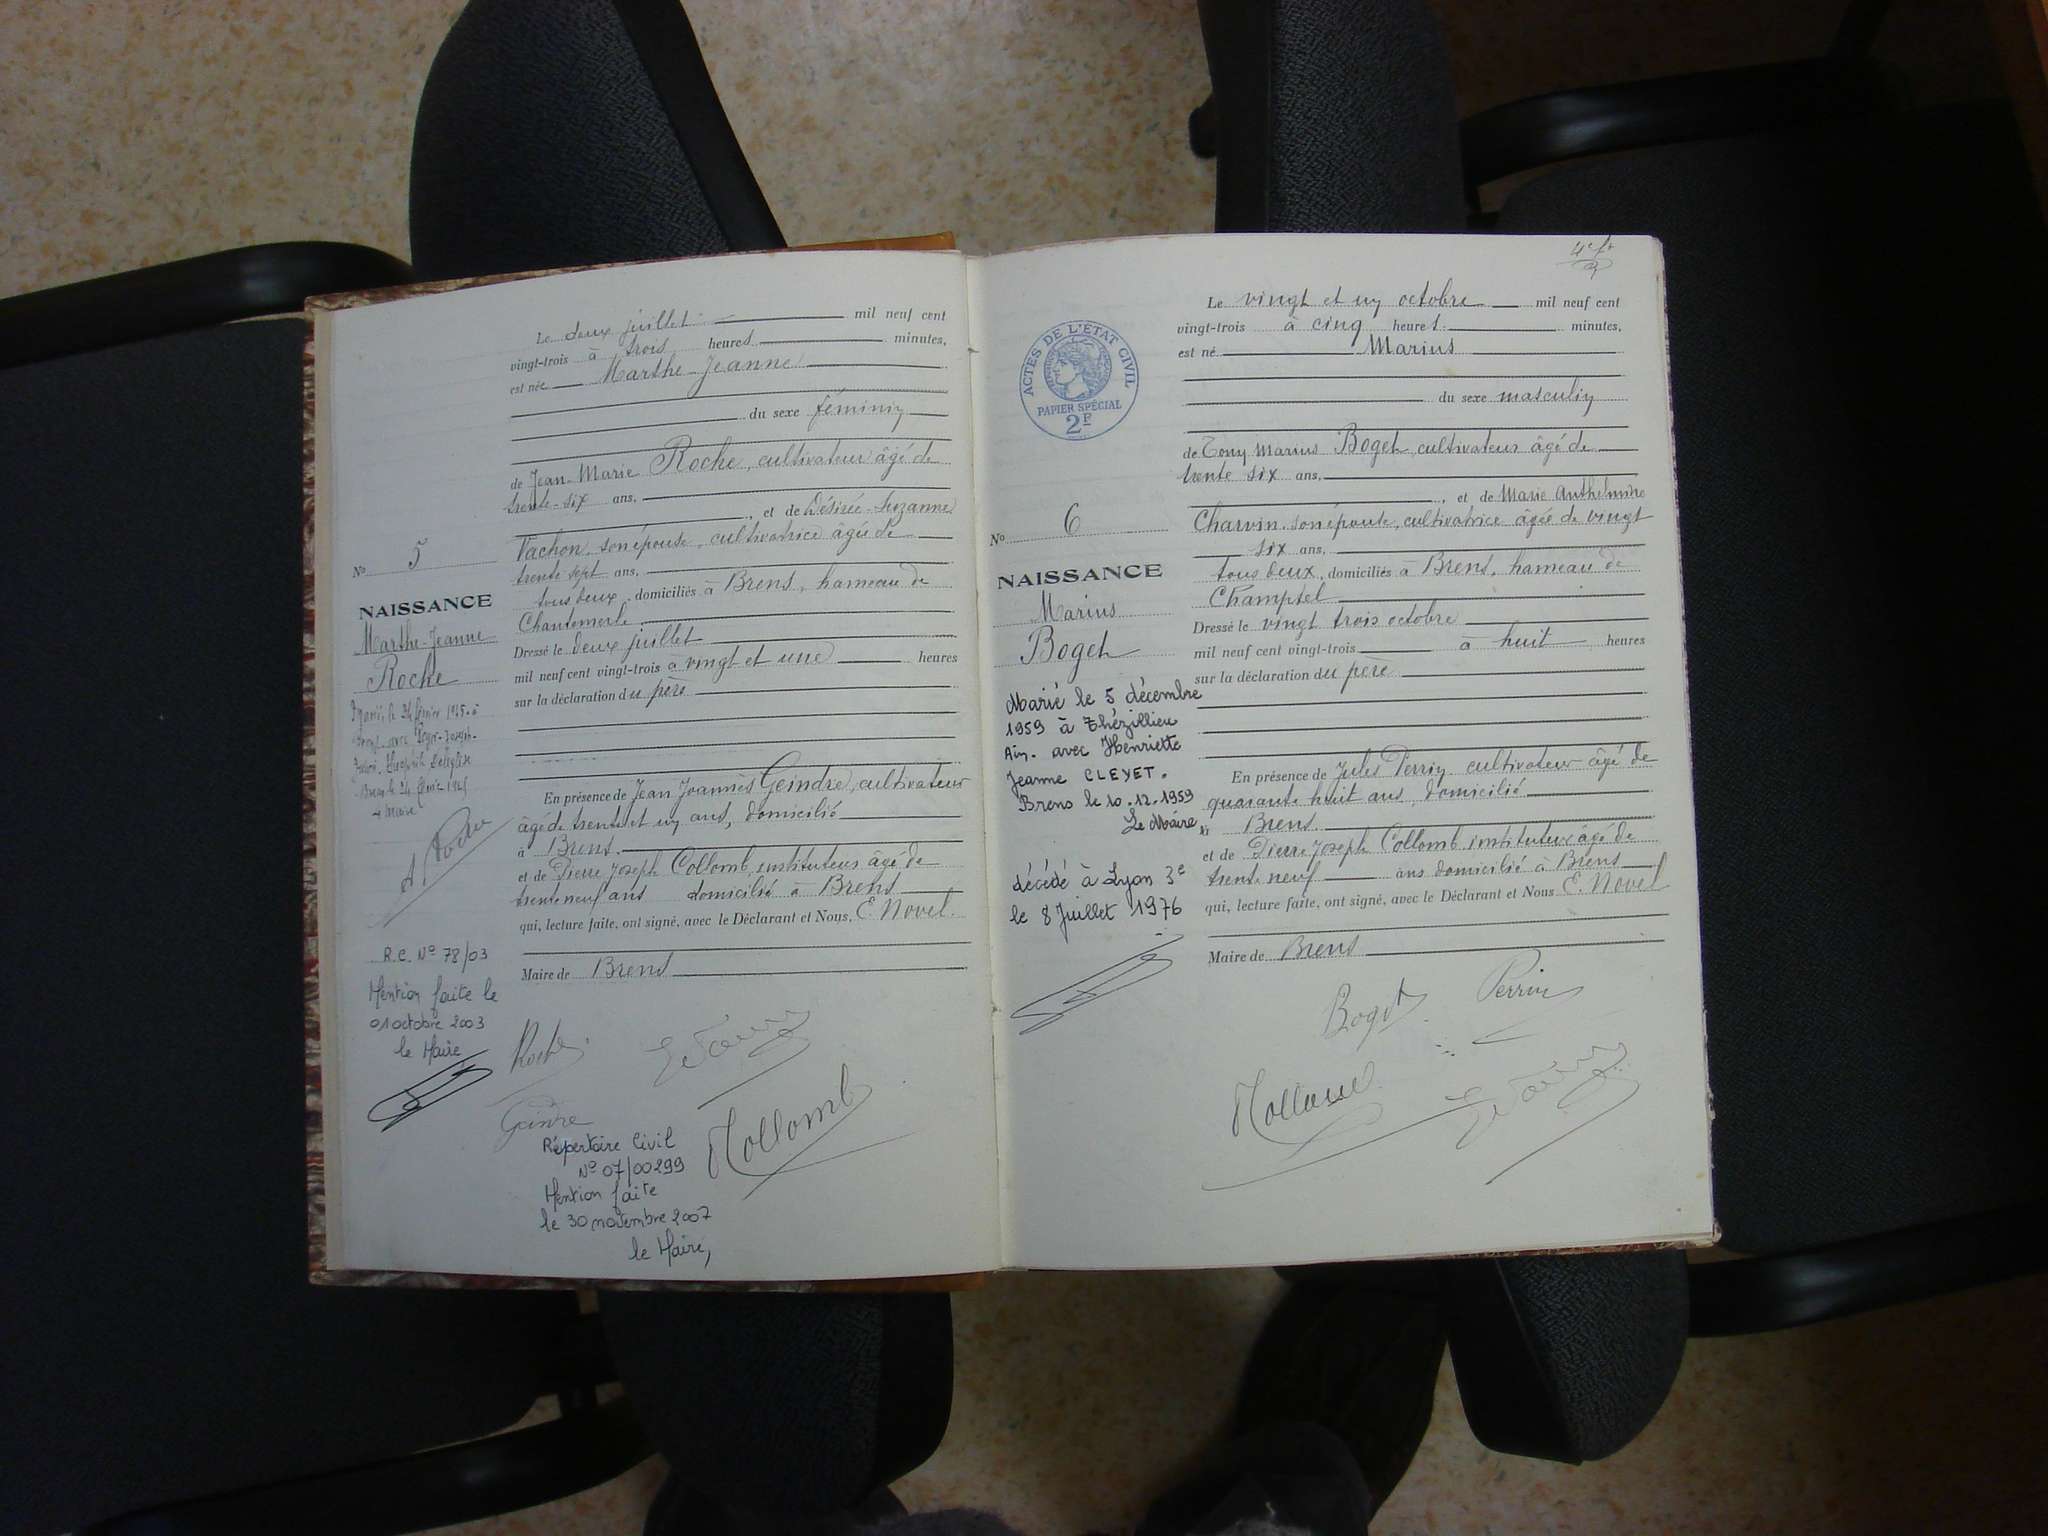 Le deux juillet mil neuf cent
vingt-trois à trois heures minutes,
est née Marthe-Jeanne
du sexe féminin
de Jean-Marie Roche, cultivateur âgé de
trente-six ans,
, et de Désirée-Suzanne
Vachon, son épouse, cultivatrice âgée de
trente sept ans,
tous deux, domiciliés à Brens, hameau de
Chantemerle
Dressé le deux juillet
mil neuf cent vingt-trois à vingt et une heures
sur la déclaration du père
En présence de Jean Joannès Geindre, cultivateur
âgé de trente et un ans, domicilié
à Brens.
et de Pierre Joseph Collomb, instituteur âgé de
trente neuf ans domicilié à Brens
qui, lecture faite, ont signé, avec le Déclarant et Nous, E. Novel.
Maire de Brens
No 5
NAISSANCE
Marthe-Jeanne
Roche
le 24 février 1945 à
avec Roger-Joseph-
24 février 1945
Maire
R.C. No 78/03
Mention faite le
01 octobre 2003
le Maire
Roche
Geindre
Collomb
Répertoire Civil
No 07/00299
Mention faite
le 30 novembre 2007
le Maire,
ACTES DE L'ÉTAT CIVIL
PAPIER SPÉCIAL
2F
Le vingt et un octobre mil neuf cent
vingt-trois à cinq heures minutes,
est né Marius
du sexe masculin
de Tony Marius Boget, cultivateur âgé de
trente six ans,
, et de Marie Anthelmine
Charvin, son épouse, cultivatrice âgée de vingt
six ans,
tous deux, domiciliés à Brens, hameau de
Champtel
Dressé le vingt trois octobre
mil neuf cent vingt-trois à huit heures
sur la déclaration du père
En présence de Jules Perrin cultivateur âgé de
quarante huit ans, domicilié
à Brens
et de Pierre Joseph Collomb instituteur âgé de
trente neuf ans domicilié à Brens
qui, lecture faite, ont signé, avec le Déclarant et Nous E. Novel
Maire de Brens
No 6
NAISSANCE
Marius
Boget
Marié le 5 décembre
1959 à Thézillieu
Ain. avec Henriette
Jeanne CLEYET.
Brens le 10.12.1959
Le Maire
décédé à Lyon 3e
le 8 Juillet 1976
Boget
Perrin
Collomb